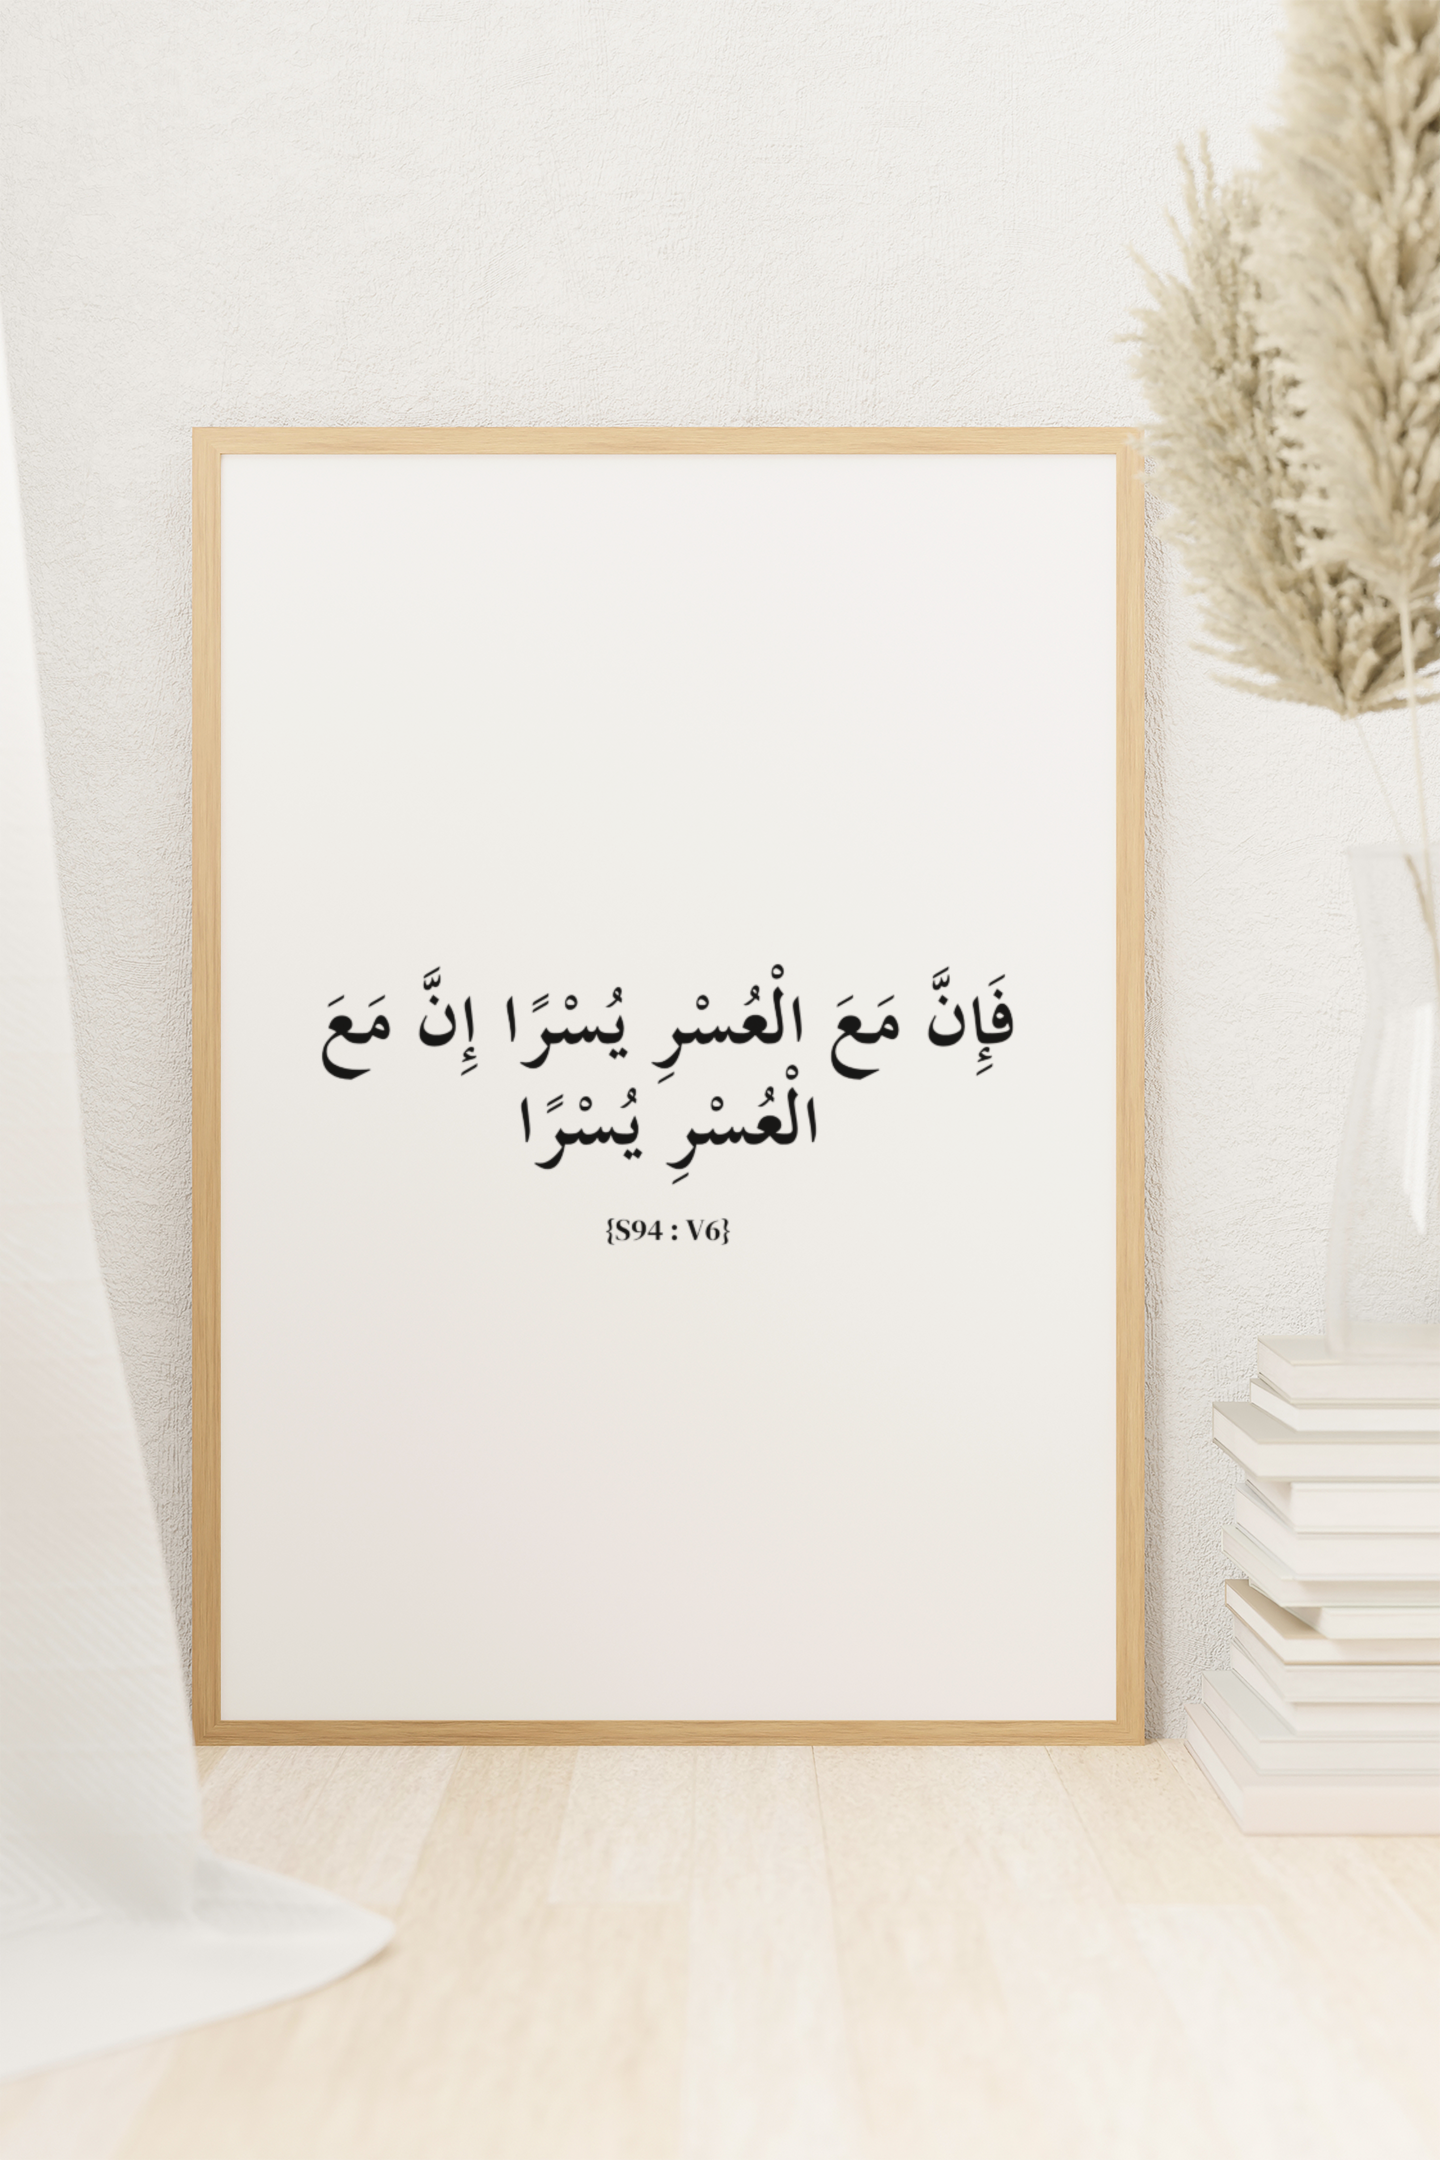 فَإِنَّ مَعَ الْعُسْرِ يُسْرًا إِنَّ مَعَ
الْعُسْرِ يُسْرًا
{S94 : V6}